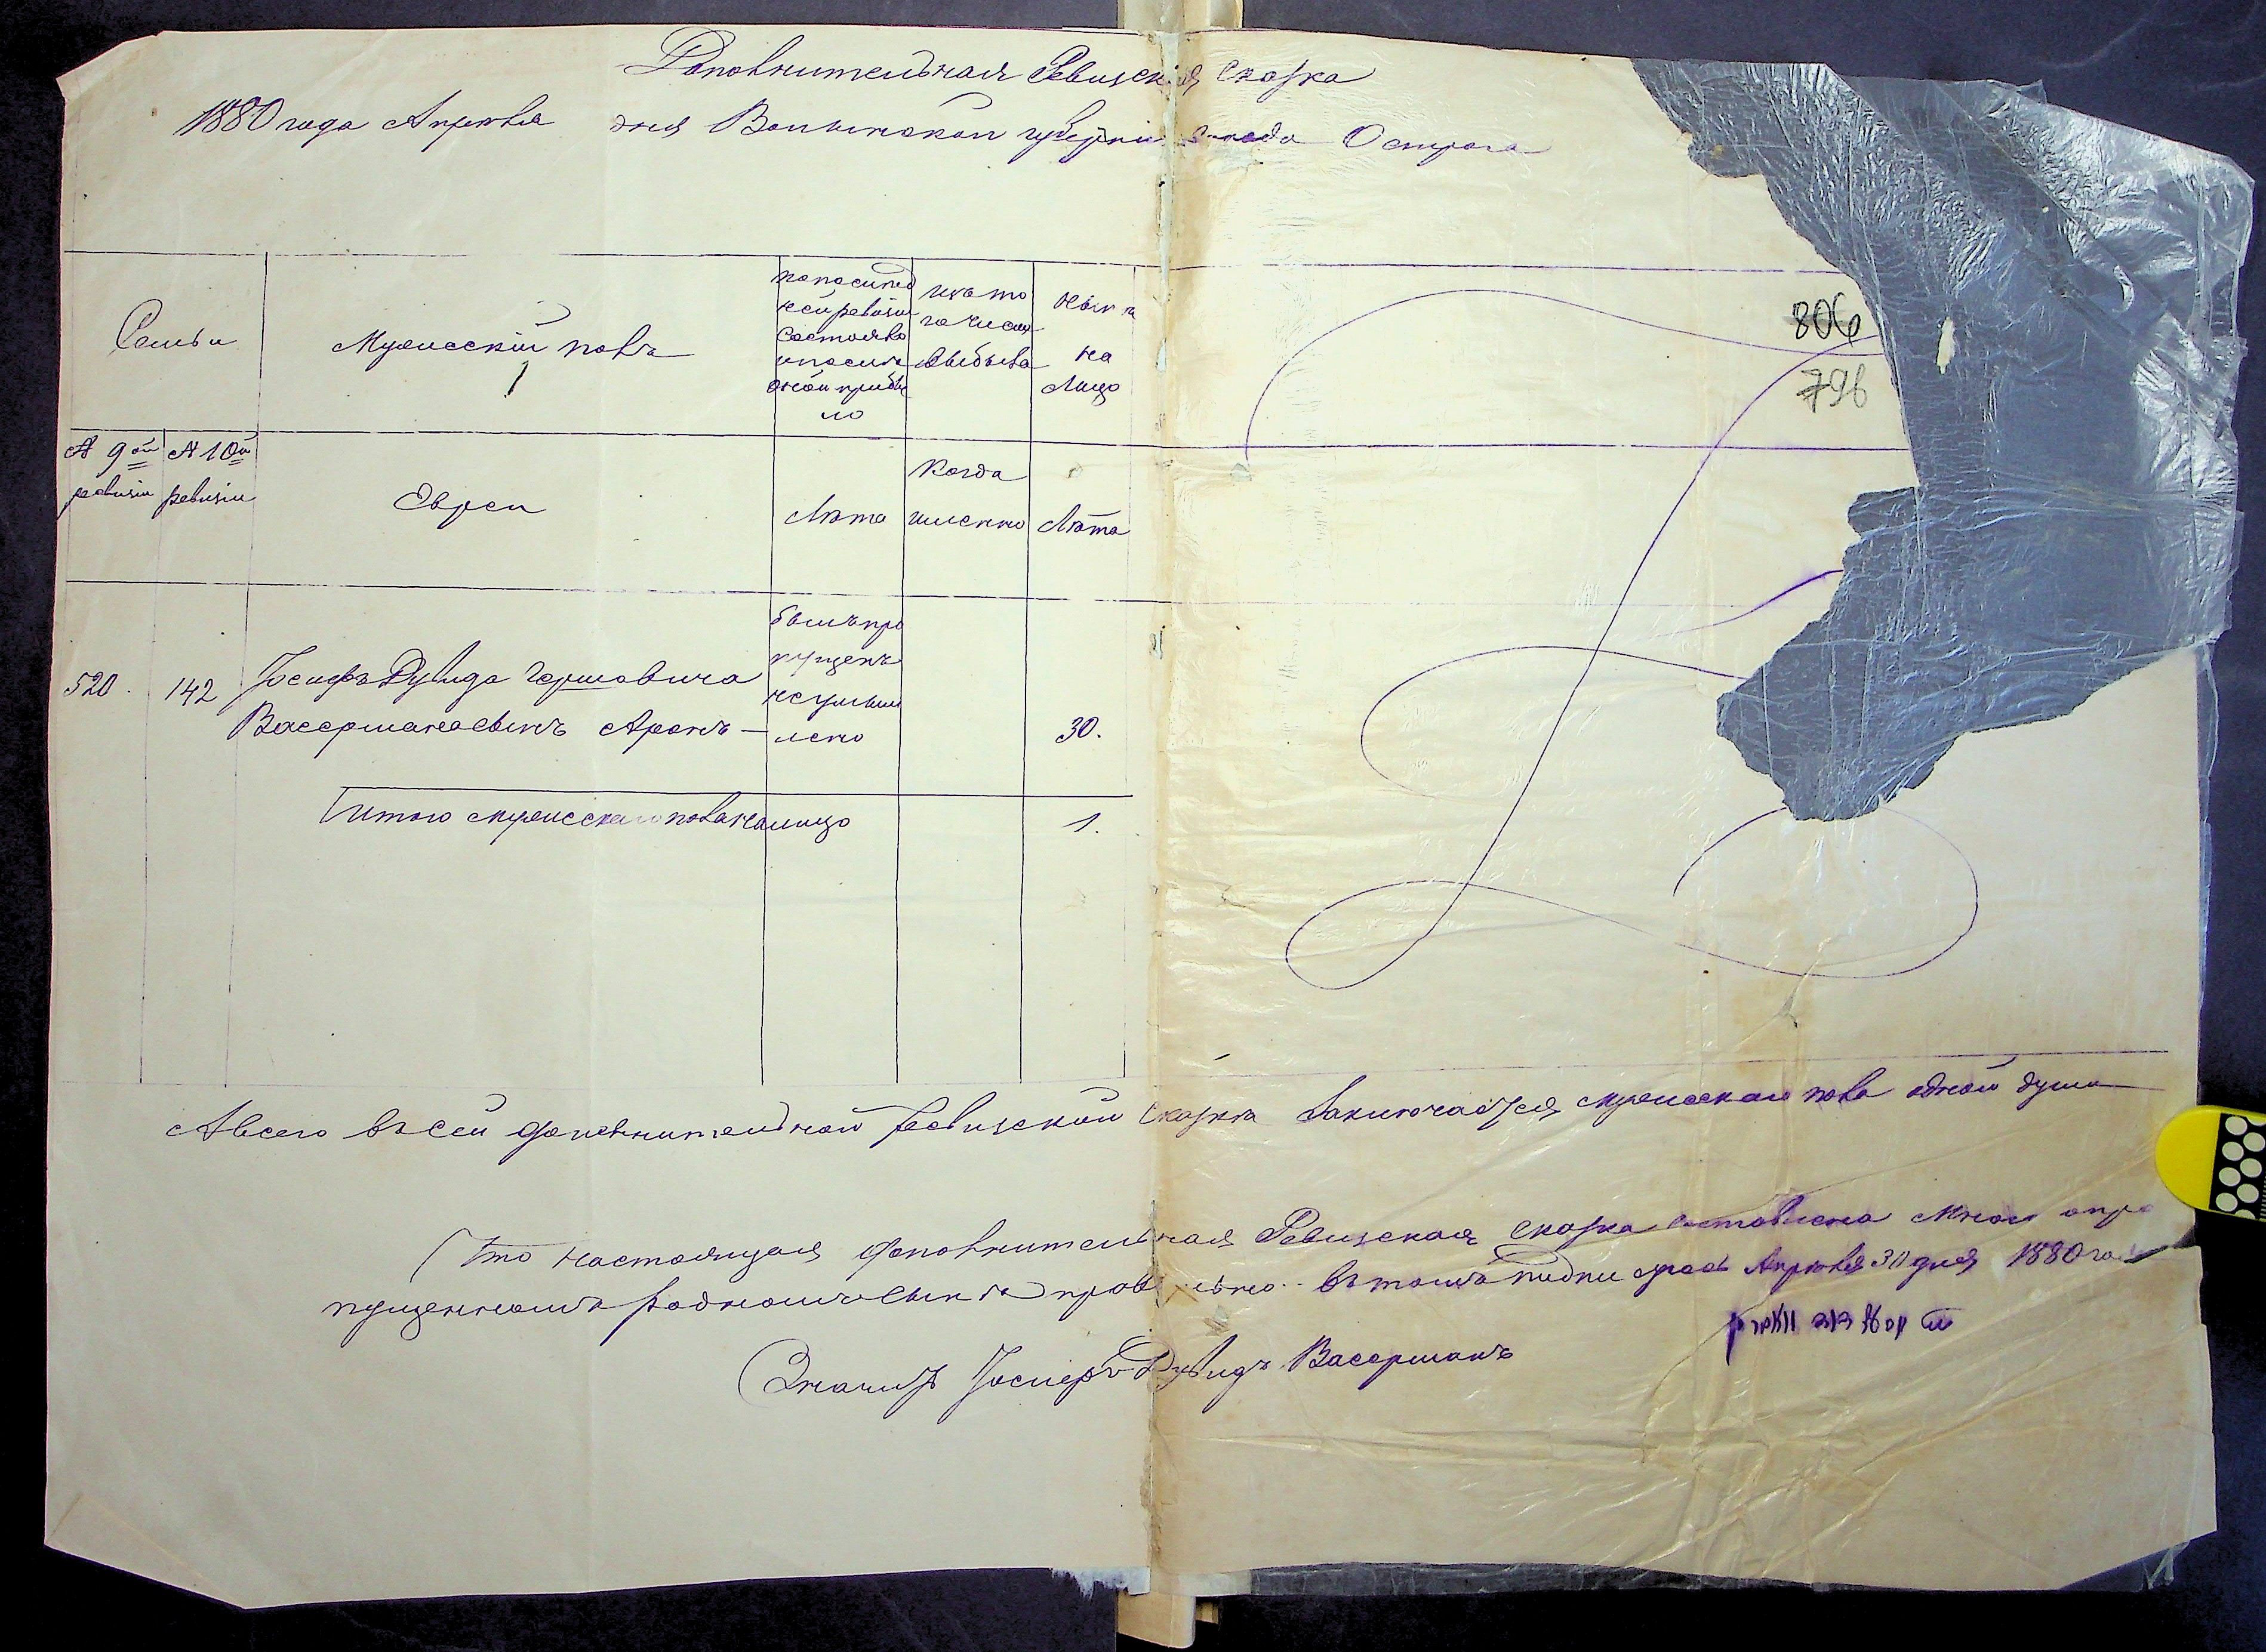 Дополнительная Ревизская Сказка
1880 года Апреля дня Волынской губерніи города Острога
806
796
Семьи
Мужескій полъ
по послед
ней ревизіи
состояло
и после
оной прибы
ло
изъ то
го числа
выбыло
ныне
на
лицо
№ 9ой ревизіи
№ 10ой ревизіи
Евреи
Лѣта
Когда
именно
Лѣта
520. 142 Іосифъ Дувида Гершовича
Васермана сынъ Аронъ —
былъ про
пущенъ
неумыш
лено
30.
Итого мужескаго пола на лицо 1.
А всего въ сей дополнительной Ревизской сказкѣ заключается мужескаго пола одной души
Что настоящая дополнительная Ревизская сказка составлена мною о про
пущенномъ родномъ сынѣ правильно въ томъ подпи Апреля 30 дня 1880 го
Значитъ Іосифъ Дувидъ Васерманъ